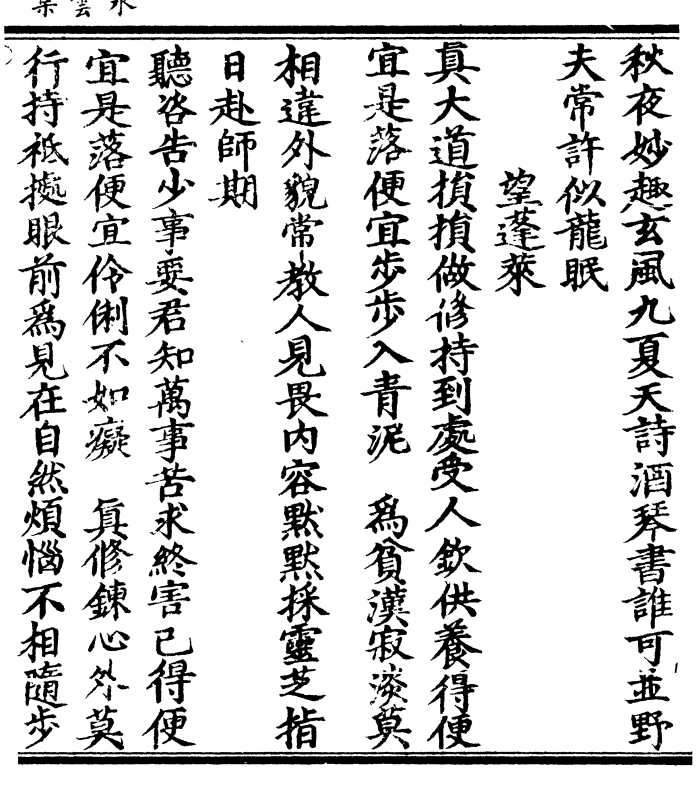 秋夜妙趣玄風九夏天詩酒琴書誰可並野
夫常許似龍眠
望蓬萊
真大道摃摃做修持到處受人欽供養得便
宜是落便宜步步入青泥　為貧漢寂淡莫
相違外貌常教人見畏內容默默採靈芝指
日赴師期
聽咨告少事要君知萬事苦求終害己得便
宜是落便宜伶俐不如癡　真修鍊心外莫
行持祇擬眼前為見在自然煩惱不相隨步